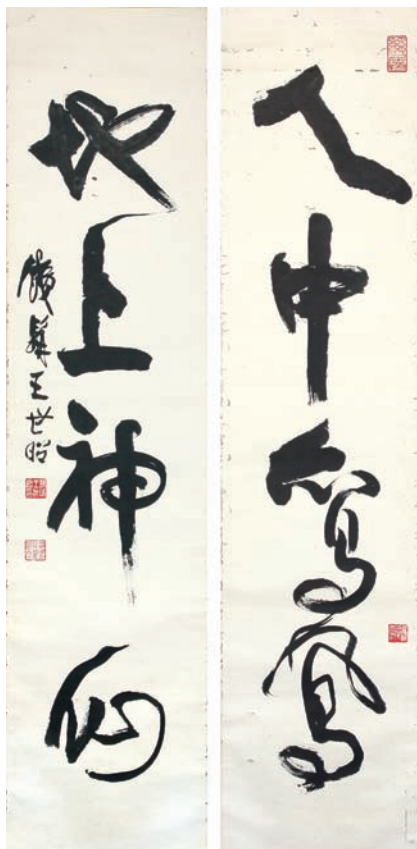 人中鸞鳳
地上神仙
鐵髯王世昭